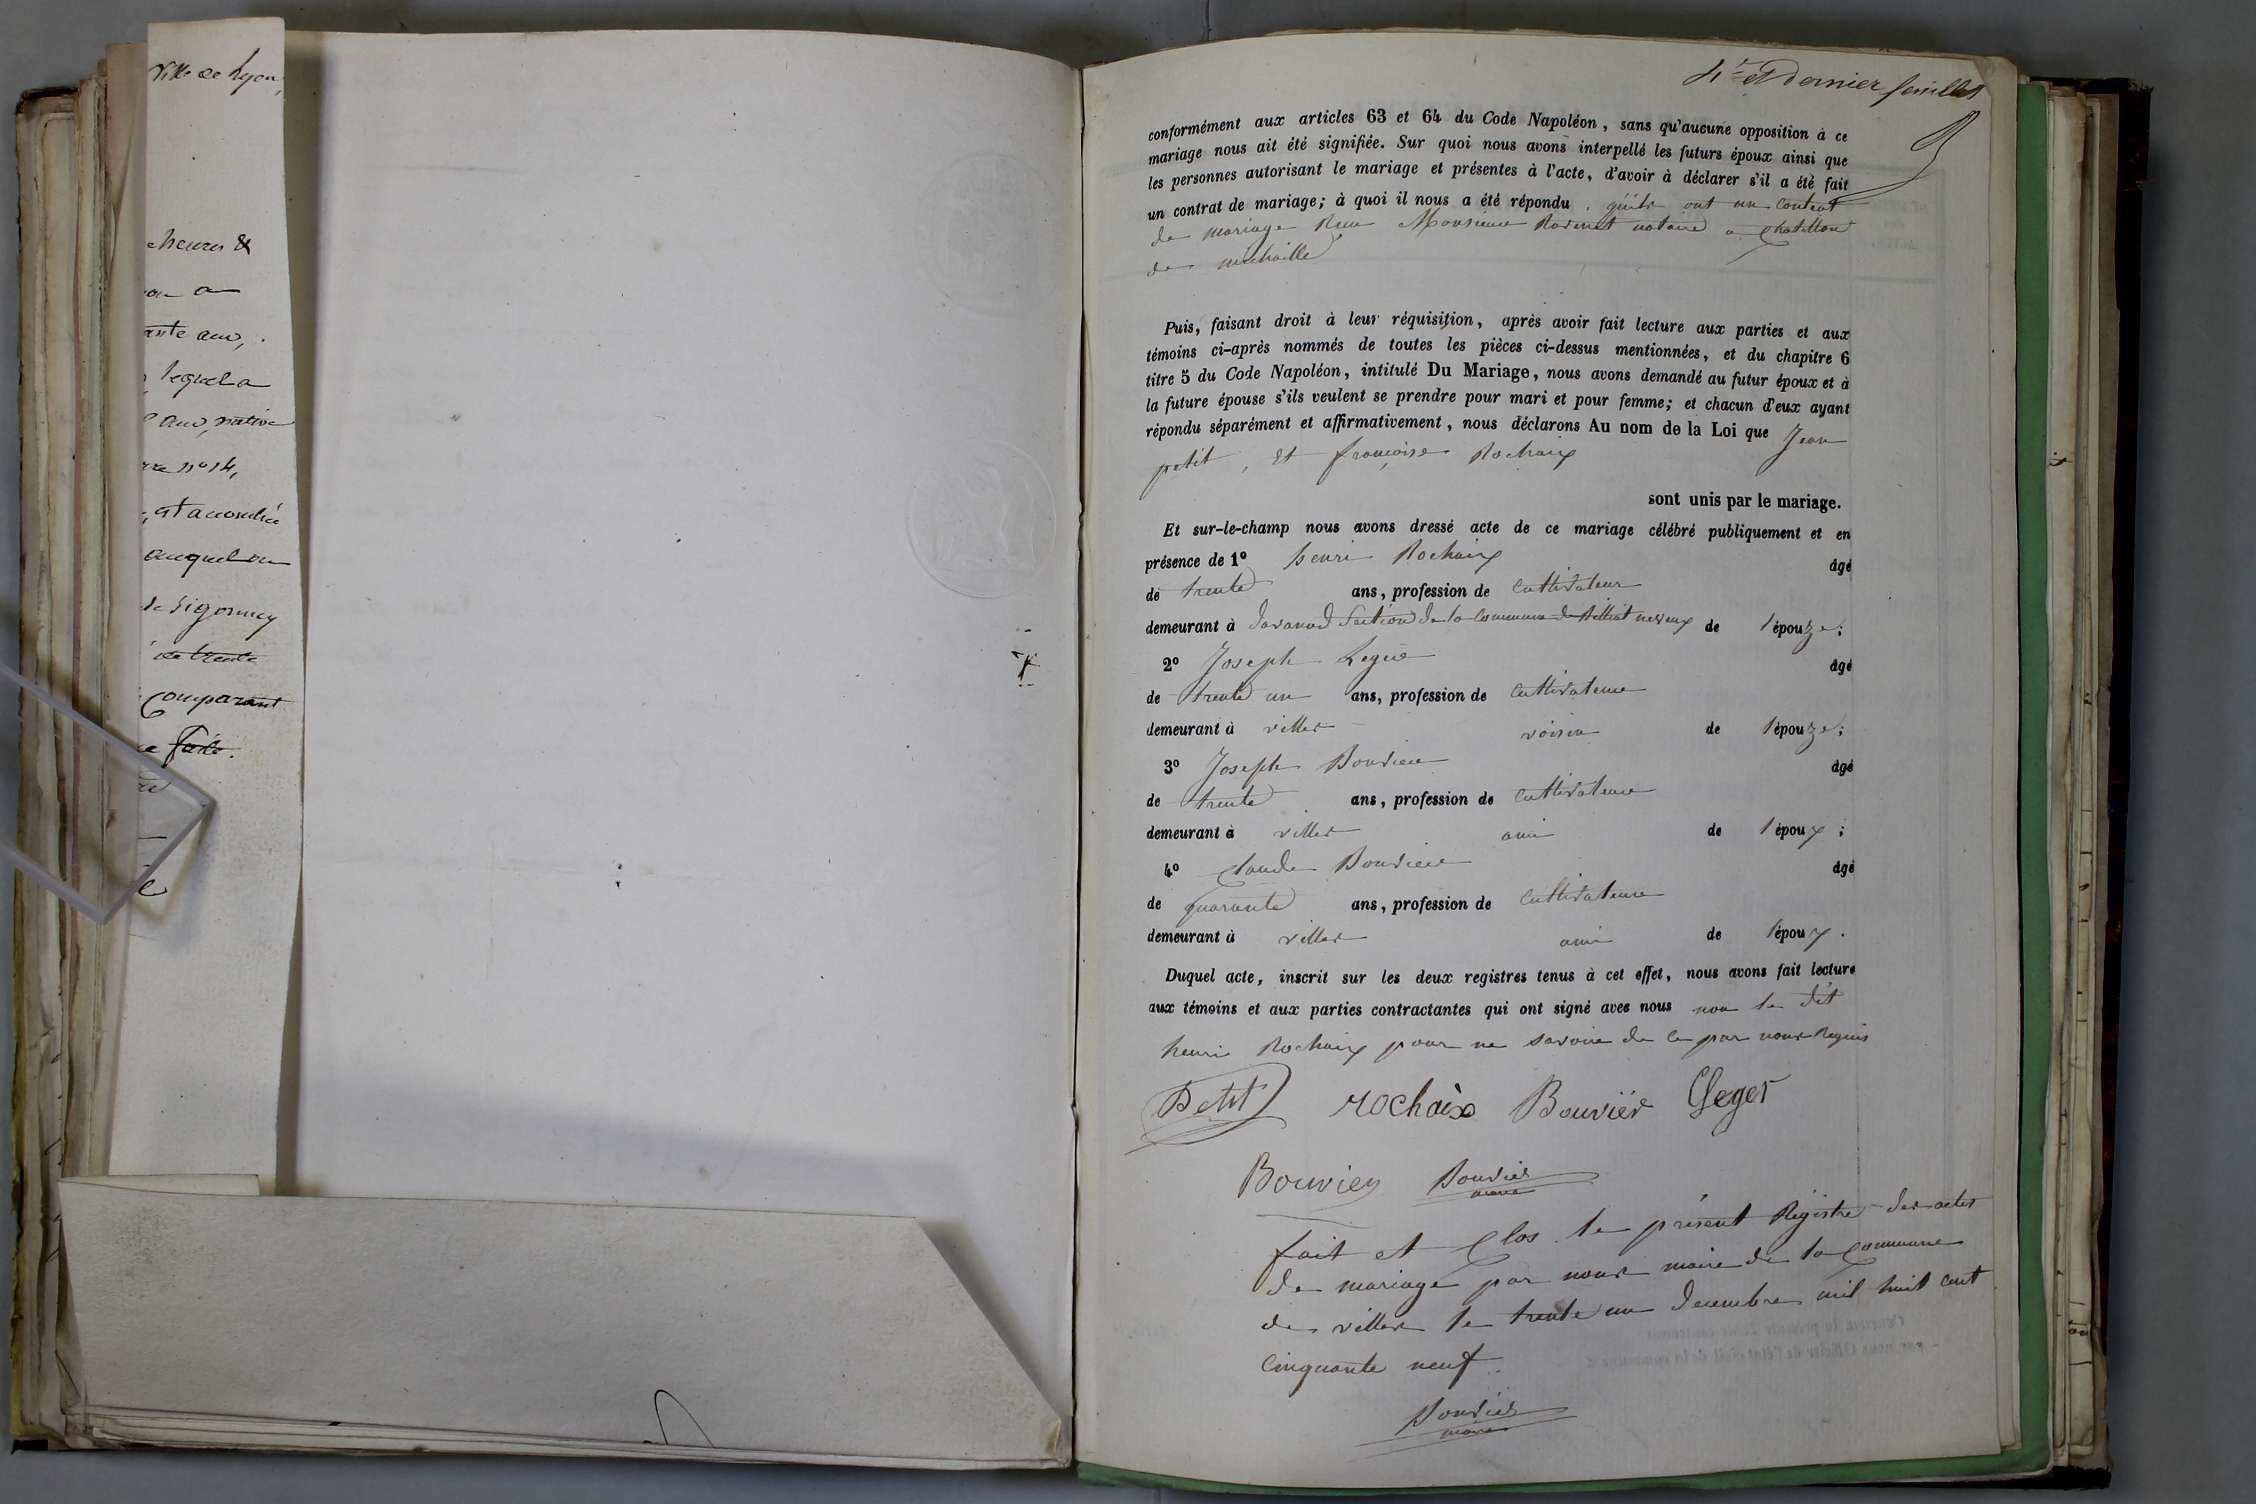 Ville de Lyon,
heures &
ante ans,
lequel a
ans, native
n° 14,
auquel
Comparant
4e et Dernier feuillet
conformément aux articles 63 et 64 du Code Napoléon, sans qu'aucune opposition à ce
mariage nous ait été signifiée. Sur quoi nous avons interpellé les futurs époux ainsi que
les personnes autorisant le mariage et présentes à l'acte, d'avoir à déclarer s'il a été fait
un contrat de mariage; à quoi il nous a été répondu. qu'ils ont un Contrat
de mariage Monsieur notaire a Chatillon
de michaille
Puis, faisant droit à leur réquisition, après avoir fait lecture aux parties et aux
témoins ci-après nommés de toutes les pièces ci-dessus mentionnées, et du chapitre 6
titre 5 du Code Napoléon, intitulé Du Mariage, nous avons demandé au futur époux et à
la future épouse s'ils veulent se prendre pour mari et pour femme; et chacun d'eux ayant
répondu séparément et affirmativement, nous déclarons Au nom de la Loi que Jean
petit, Et françoise Rochaix
sont unis par le mariage.
Et sur-le-champ nous avons dressé acte de ce mariage célébré publiquement et en
présence de 1° henri Rochaix âgé
de trente ans, profession de Cultivateur
demeurant à Section de la Commune de de l'épouze;
2° Joseph âgé
de trente un ans, profession de Cultivateur
demeurant à villes voisin de l'épouze;
3° Joseph Bouvier âgé
de trente ans, profession de Cultivateur
demeurant à villes ami de l'époux;
4° Claude Bouvier âgé
de quarante ans, profession de Cultivateur
demeurant à villes ami de l'époux.
Duquel acte, inscrit sur les deux registres tenus à cet effet, nous avons fait lecture
aux témoins et aux parties contractantes qui ont signé avec nous non le dit
henri Rochaix pour ne savoir de ce par nous Requis
Petit rochaix Bouvier Leger
Bouvier Bouvier
maire
fait et Clos le présent Régistre des actes
de mariage par nous maire de la Commune
de villes le trente un decembre mil huit cent
Cinquante neuf.
Bouvier
maire